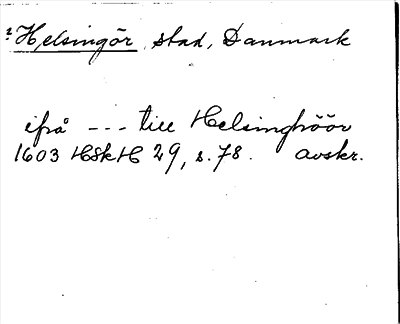 2 Helsingör, stad, Danmark
ifrå --- till Helsinghöör
1603 HSkH 29, s. 78. avskr.